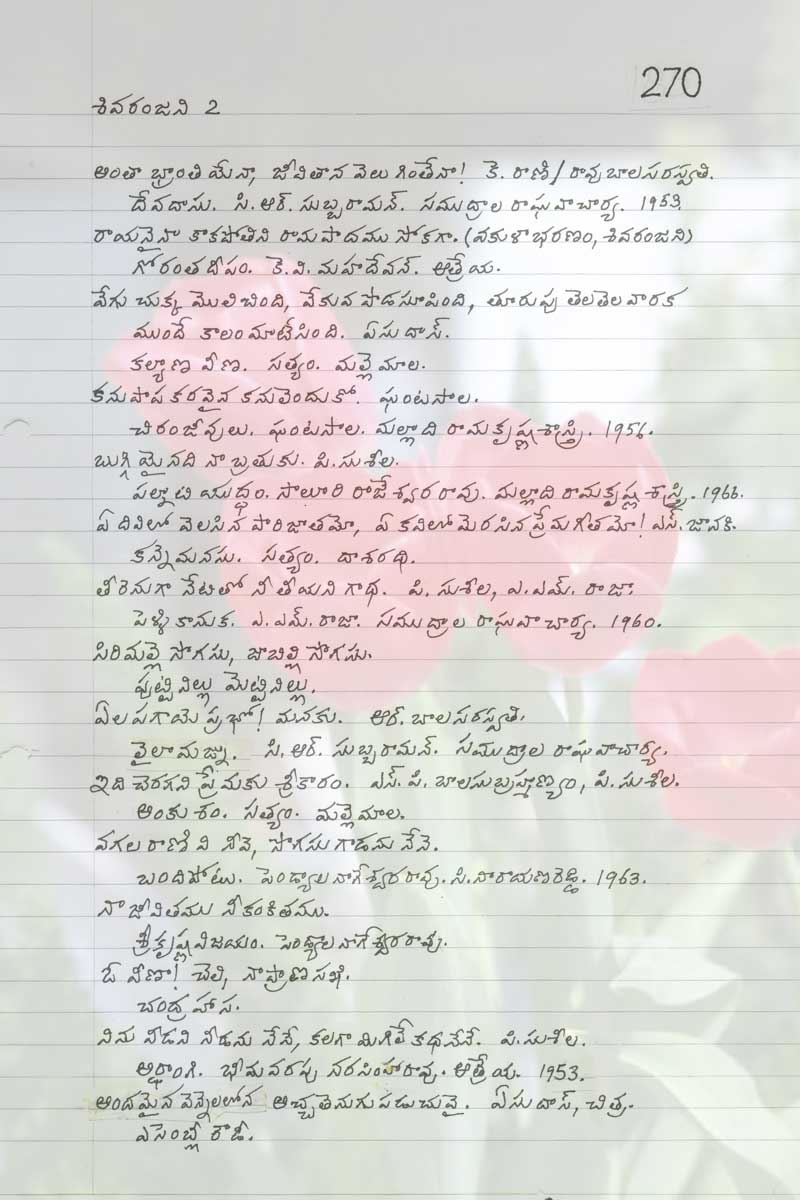 270
శివరంజని 2
అంతా భ్రాంతి యేనా, జీవితాన వెలుగింతేనా! కె. రాణి/రావు బాలసరస్వతి.
దేవదాసు. సి.ఆర్. సుబ్బరామన్. సముద్రాల రాఘవాచార్య. 1953.
రాయినైనా కాకపోతిని రామపాదము సోకగా. (వకుళాభరణం, శివరంజని)
గోరంతదీపం. కె.వి. మహదేవన్. ఆత్రేయ.
వేగు చుక్క మొలిచింది, వేకువ పొడసూపింది, తూరుపు తెలతెలవారక
ముందే కాలం మాటేసింది. ఏసుదాస్.
కల్యాణ వీణ. సత్యం. మల్లెమాల.
కనుపాప కరవైన కనులెందుకో. ఘంటసాల.
చిరంజీవులు. ఘంటసాల. మల్లాది రామకృష్ణశాస్త్రి. 1956.
బుగ్గి మైనది నా బ్రతుకు. పి.సుశీల.
పల్నాటి యుద్ధం. సాలూరి రాజేశ్వరరావు. మల్లాది రామకృష్ణ శాస్త్రి. 1966.
ఏ దివిలో వెలసిన పారిజాతమో, ఏ కవిలో మెరసిన ప్రేమగీతమో! ఎస్. జానకి.
కన్నెమనసు. సత్యం. దాశరథి.
తీరెనుగా నేటితో నీ తీయని గాథ. పి. సుశీల, ఎ.ఎమ్. రాజా.
పెళ్ళి కానుక. ఎ.ఎమ్. రాజా. సముద్రాల రాఘవాచార్య. 1960.
సిరిమల్లె సొగసు, జాబిల్లి సొగసు.
పుట్టినిల్లు మెట్టినిల్లు.
ఏల పగాయె ప్రభో! మనకు. ఆర్. బాలసరస్వతి.
లైలామజ్ను. సి.ఆర్. సుబ్బరామన్. సముద్రాల రాఘవాచార్య.
ఇది చెరగని ప్రేమకు శ్రీకారం. ఎస్. పి. బాలసుబ్రహ్మణ్యం, పి.సుశీల.
అంకుశం. సత్యం. మల్లెమాల.
వగల రాణివి నీవె, సొగసుగాడను నేనె.
బందిపోటు. పెండ్యాల నాగేశ్వరరావు. సి.నారాయణరెడ్డి. 1963.
నా జీవితము నీకంకితము.
శ్రీకృష్ణవిజయం. పెండ్యాల నాగేశ్వరరావు.
ఓ వీణా! చెలి, నాప్రాణసఖి.
చంద్రహాస.
నిను నీడని నీడను నేనే, కలగా మిగిలే కథనేనే. పి.సుశీల.
అర్ధాంగి. భీమవరపు నరసింహారావు. ఆత్రేయ. 1953.
అందమైన వెన్నెలలోన అచ్చతెనుగు పడుచువై. ఏసుదాస్, చిత్ర.
ఎసెంబ్లీ రౌడీ.